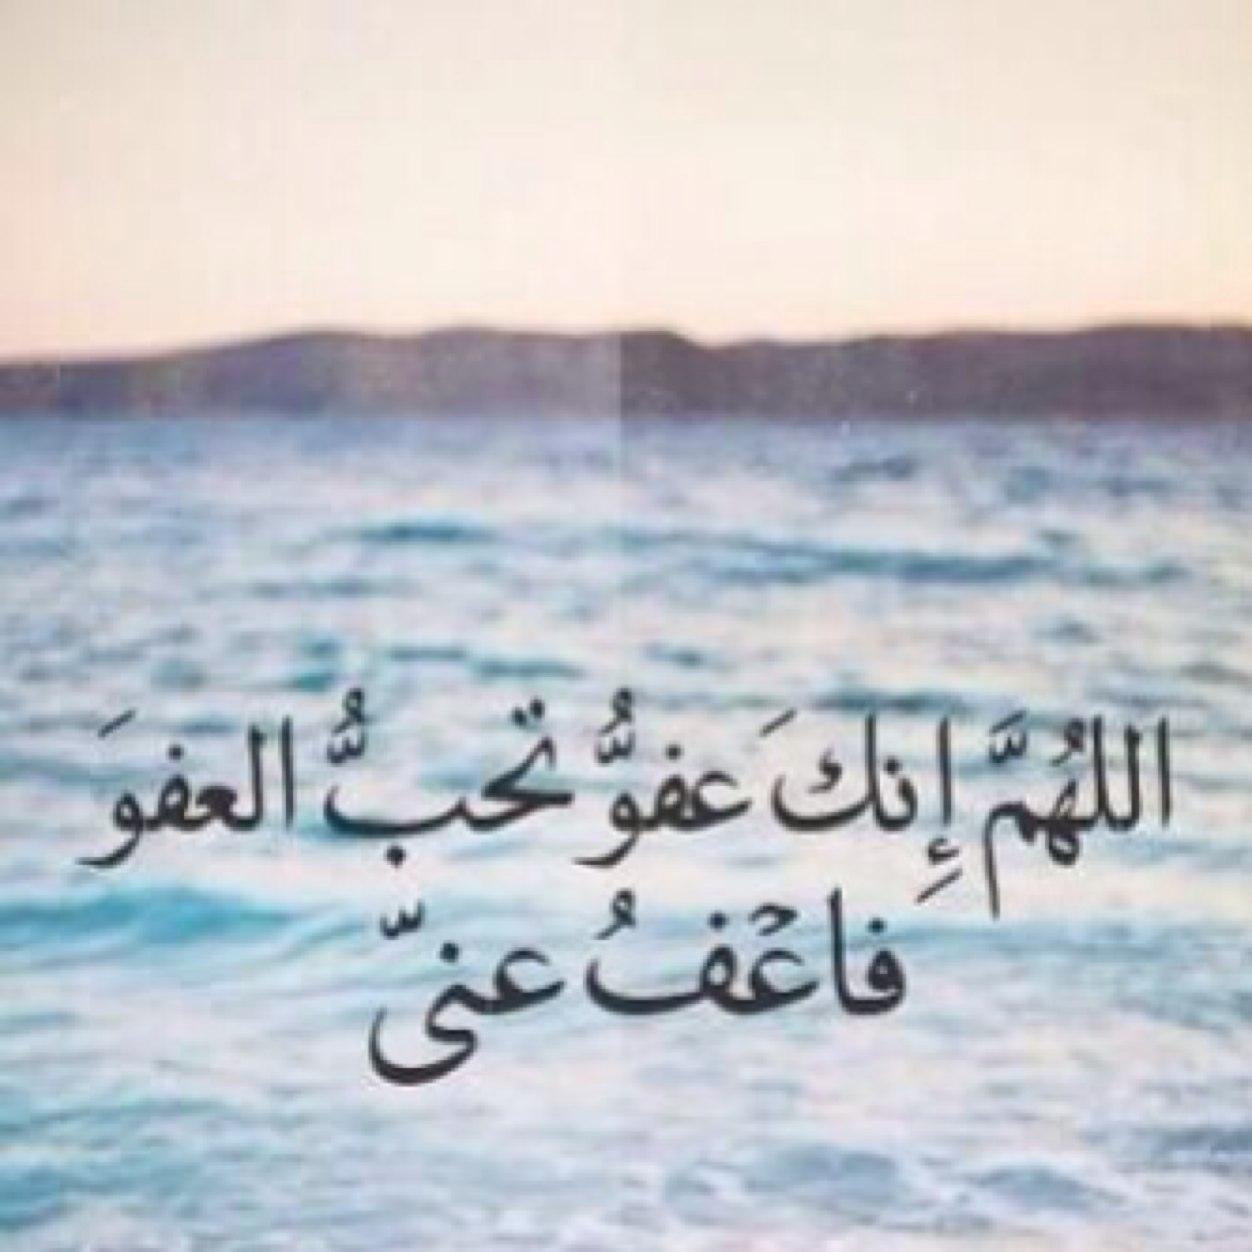 اللهُمَّ إِنكَ عفوُّ تحبُّ العفوَ
فاعۡفُ عنىّ